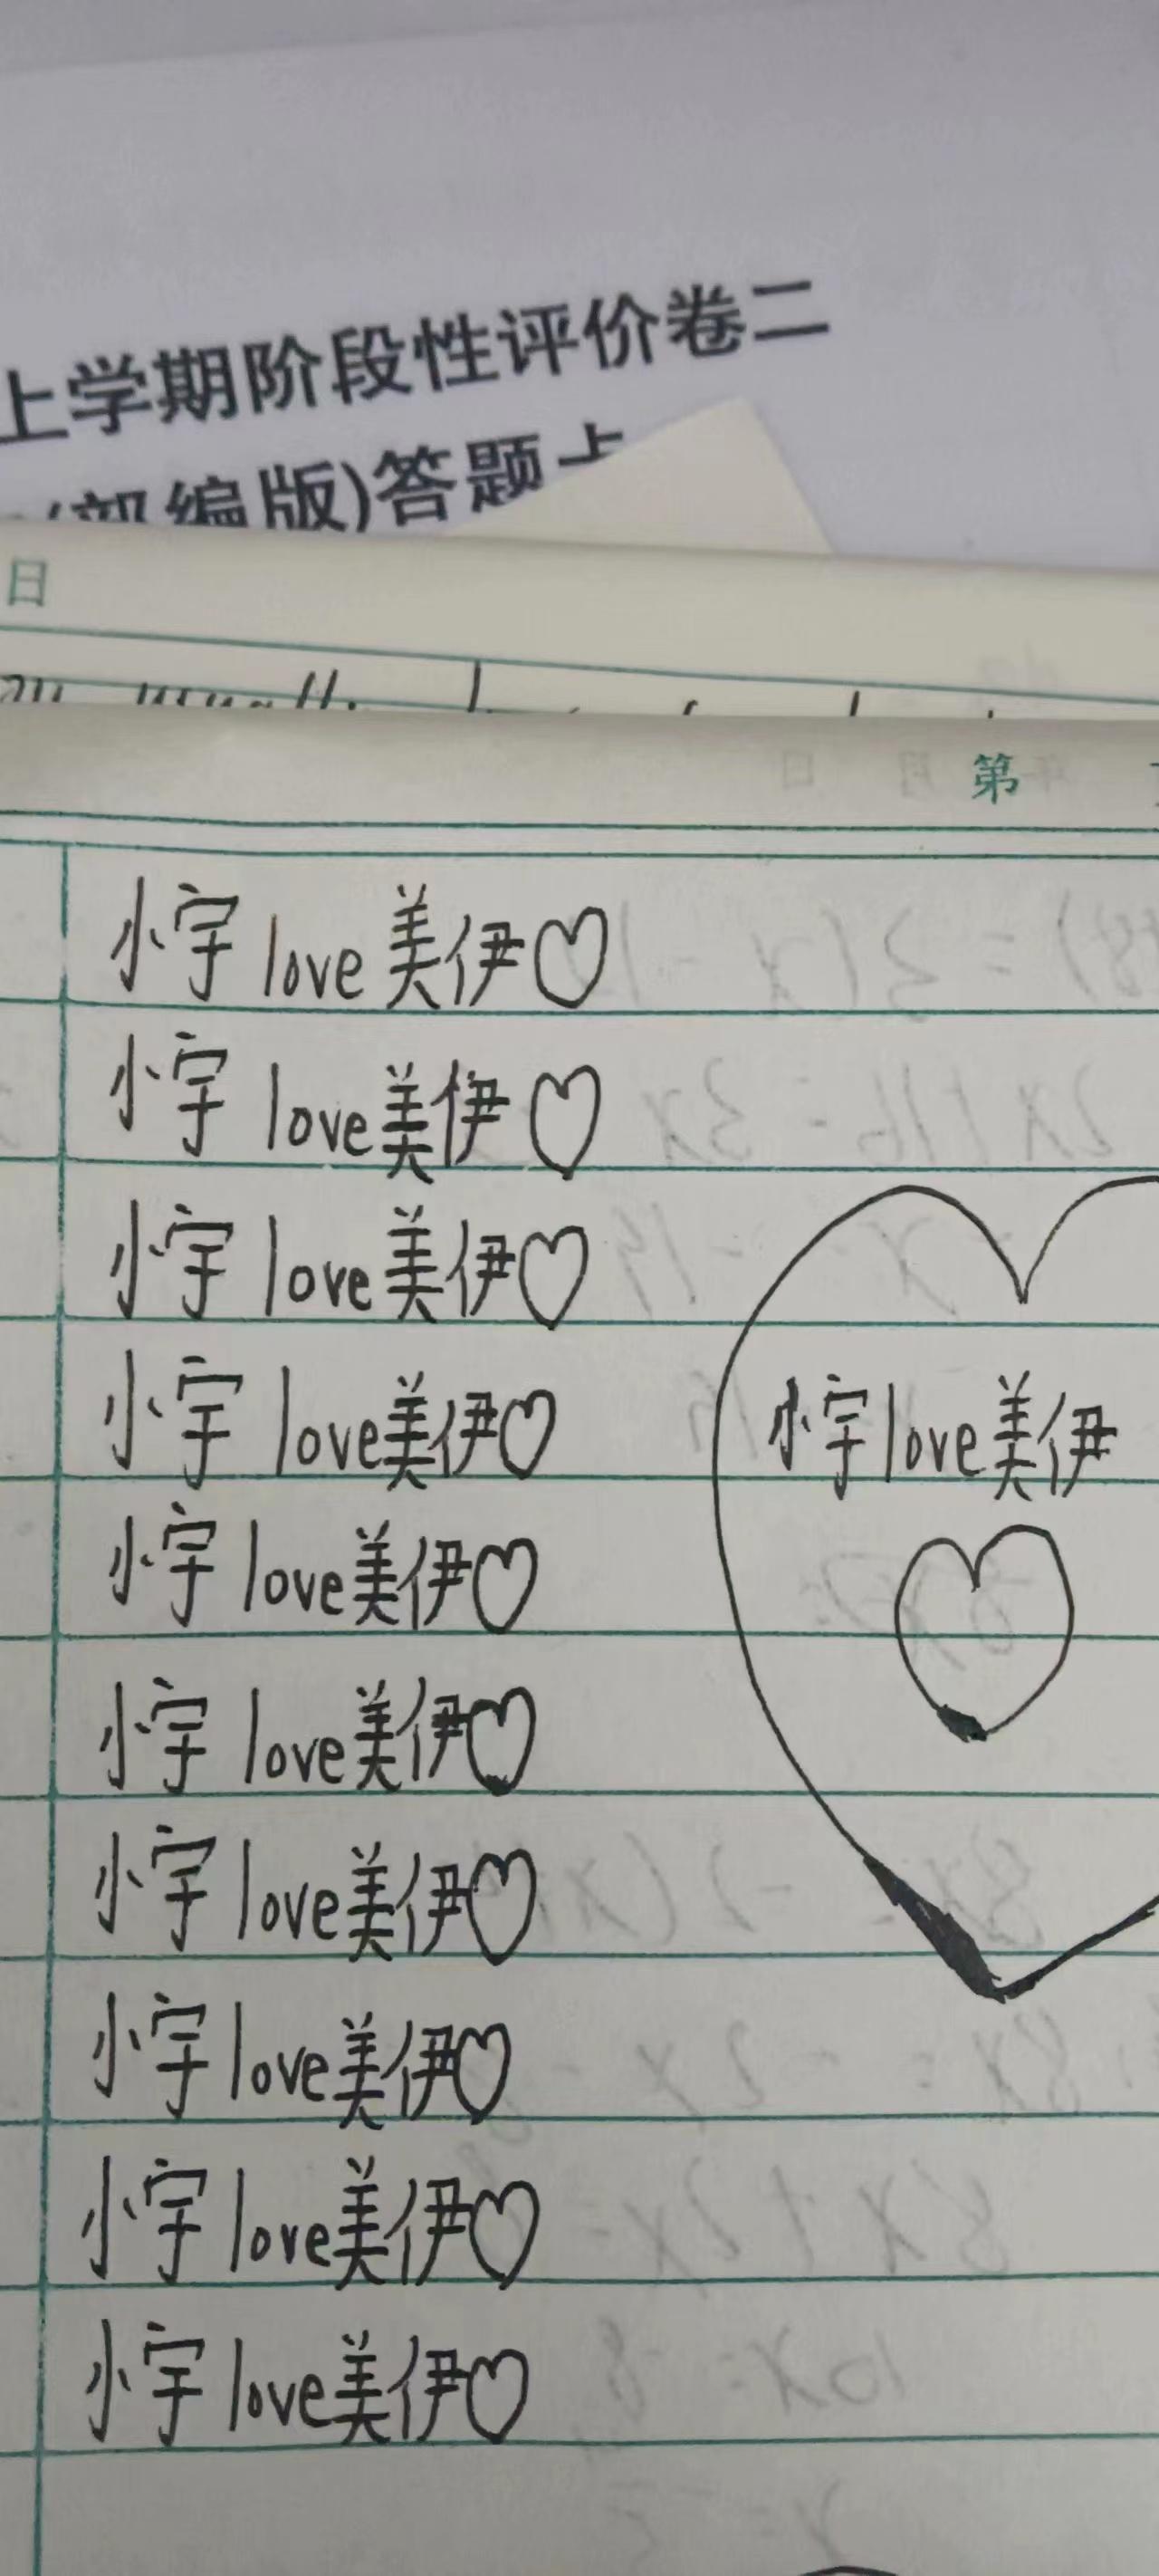 上学期阶段性评价卷二
(部编版)答题卡
日
第
小宇 love 美伊♡
小宇 love美伊♡
小宇 love美伊♡
小宇 love美伊♡
小宇 love美伊♡
小宇 love美伊♡
小宇 love美伊♡
小宇 love美伊♡
小宇 love美伊♡
小宇 love美伊♡
小宇love美伊